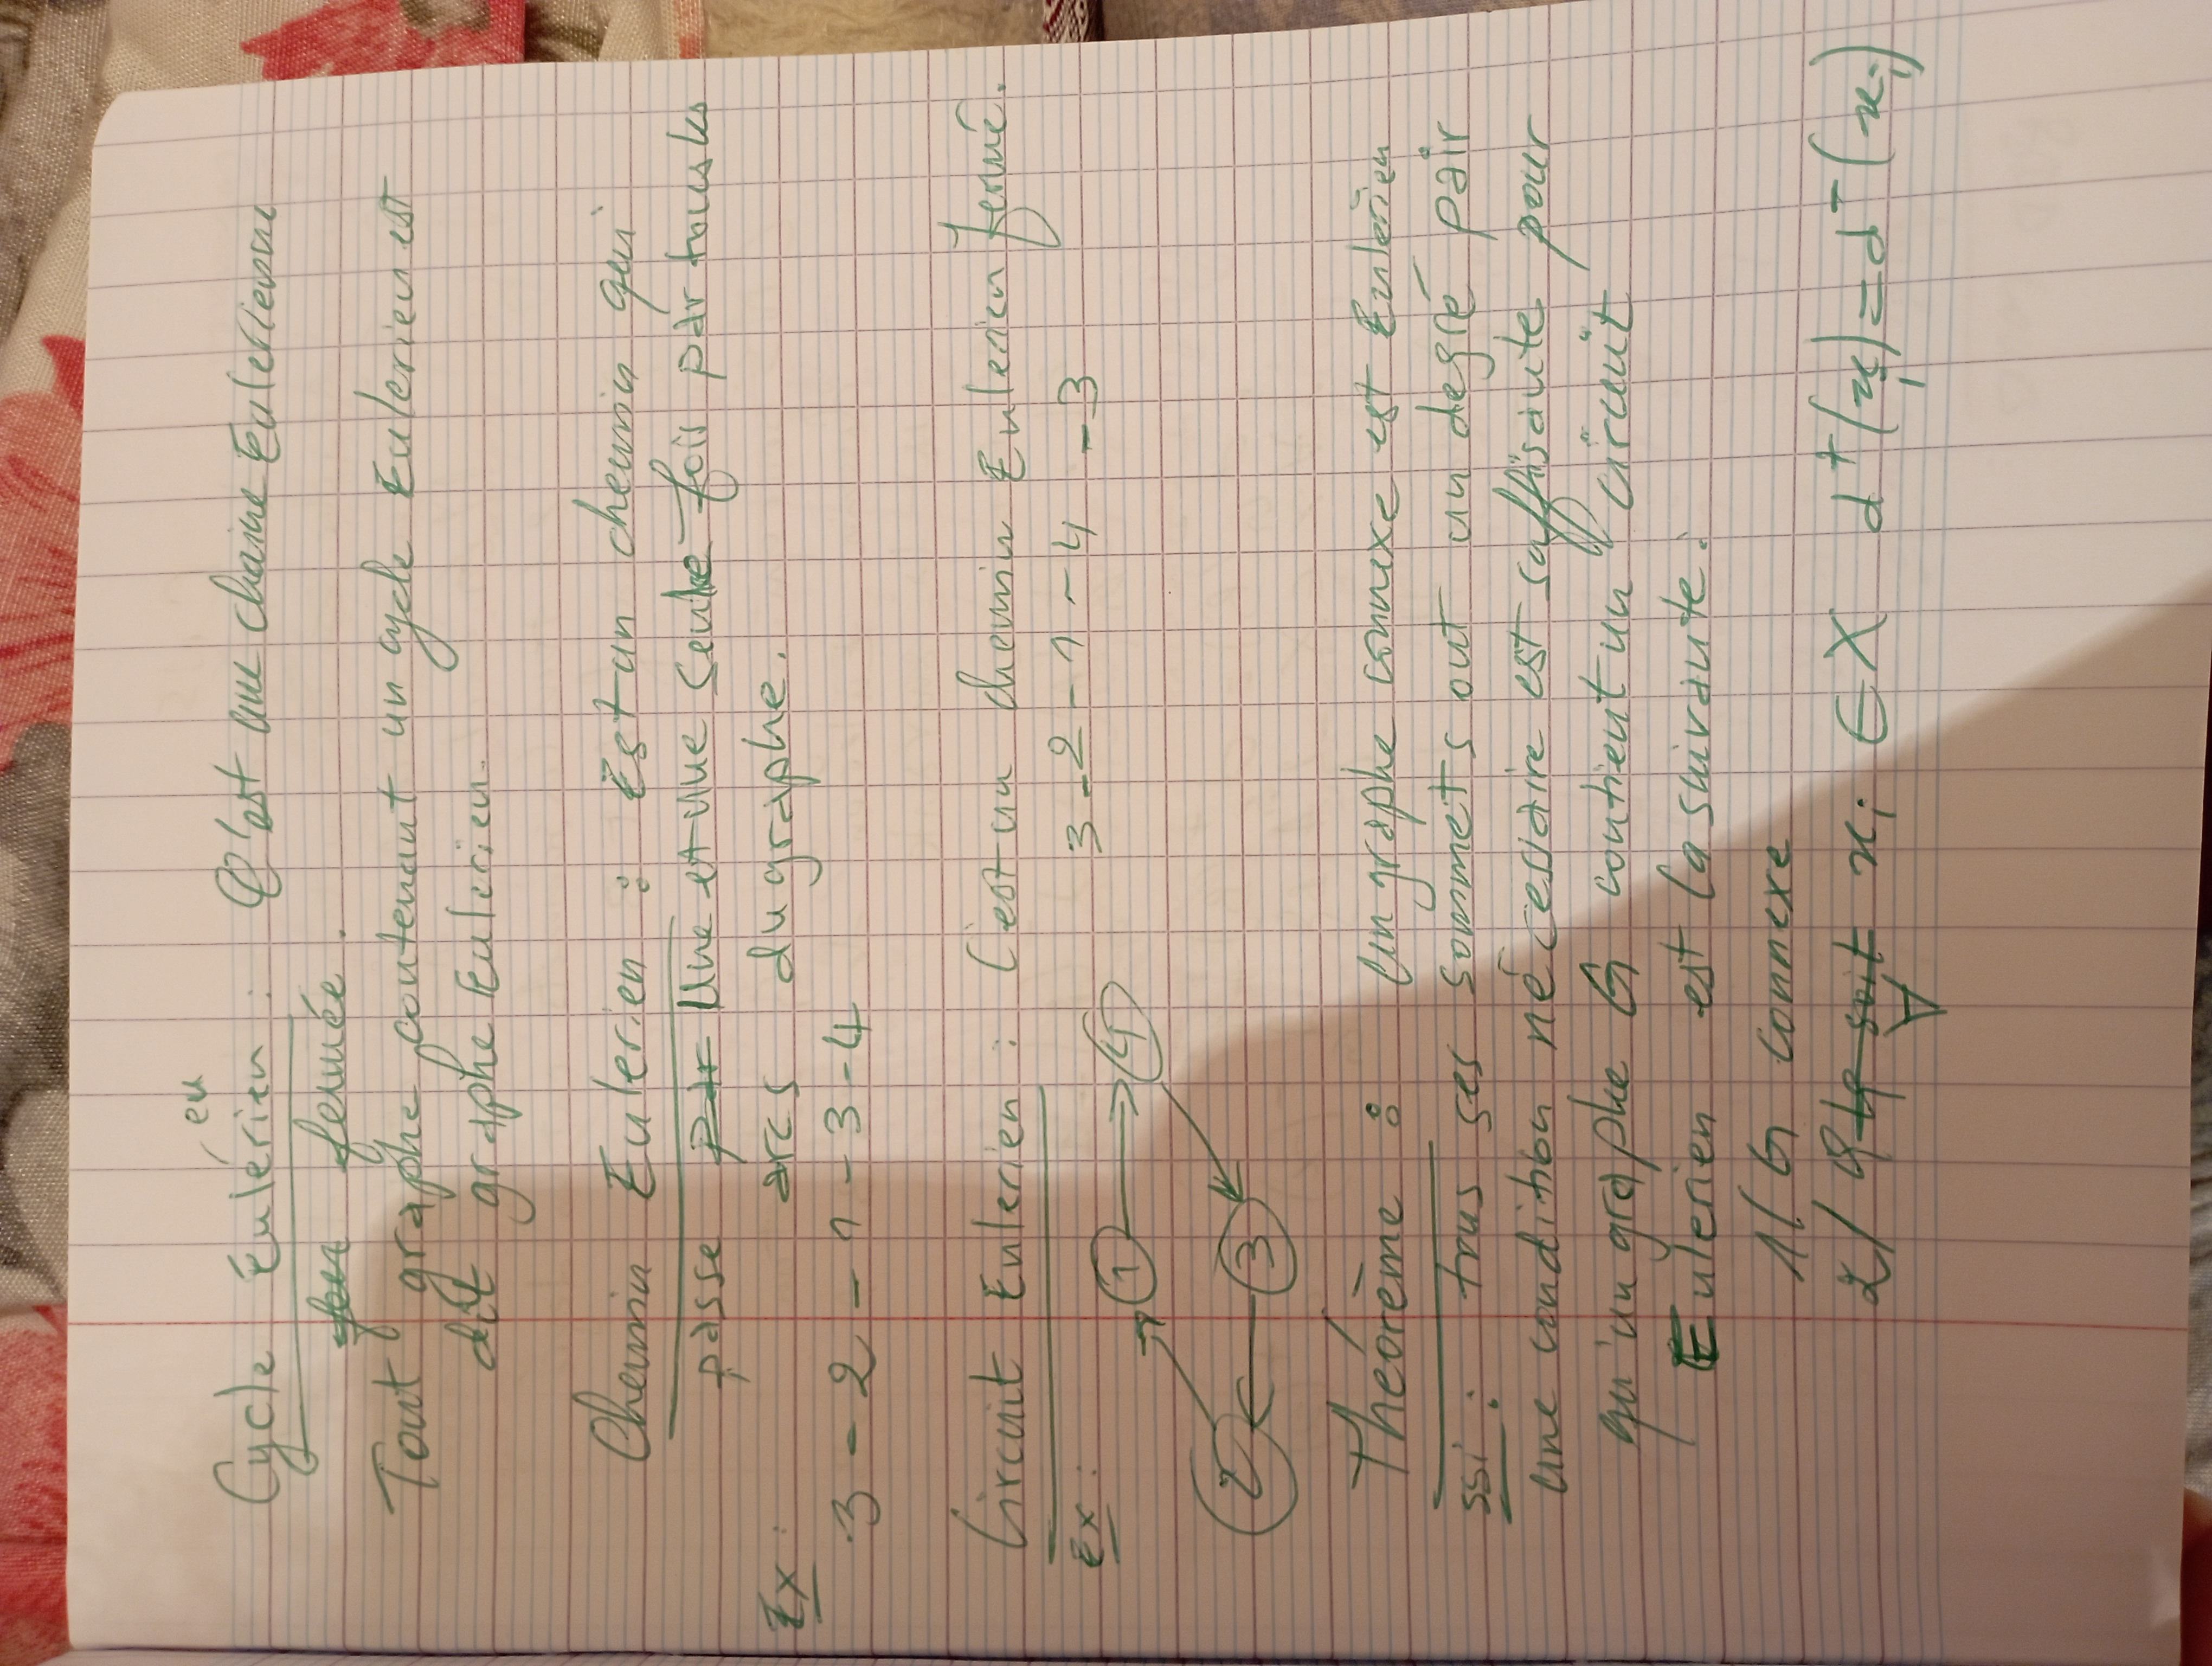 eu
Cycle Eulérien : C'est une chaine Eulerienne
fermée.
Tout graphe contenant un cycle Eulerien est
dit graphe Eulerien.
Chemin Eulerien : Est un chemin qui
passe par Une et une seule fois par tous les
Ex : arcs du graphe.
3 - 2 - 1 - 3 - 4
Circuit Eulerien : C'est un chemin Eulerien fermé.
Ex : 3 - 2 - 1 - 4 - 3
1 4
2 3
Théorème : Un graphe connexe est Eulerien
ssi : tous ses sommets ont un degré pair
une condition nécessaire est suffisante pour
qu'un graphe G contient un circuit
Eulerien est la suivante :
1/ G connexe
2/ ∀ xi ∈ X d⁺(xi) = d⁻(xi)